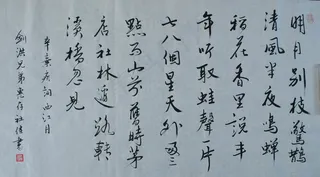 明月別枝驚鵲
清風半夜鳴蟬
稻花香里說丰
年听取蛙聲一片
七八個星天外兩三
點雨山前舊時茅
店社林邊路轉
溪橋忽見
辛棄疾詞西江月
劍洪兄弟惠存